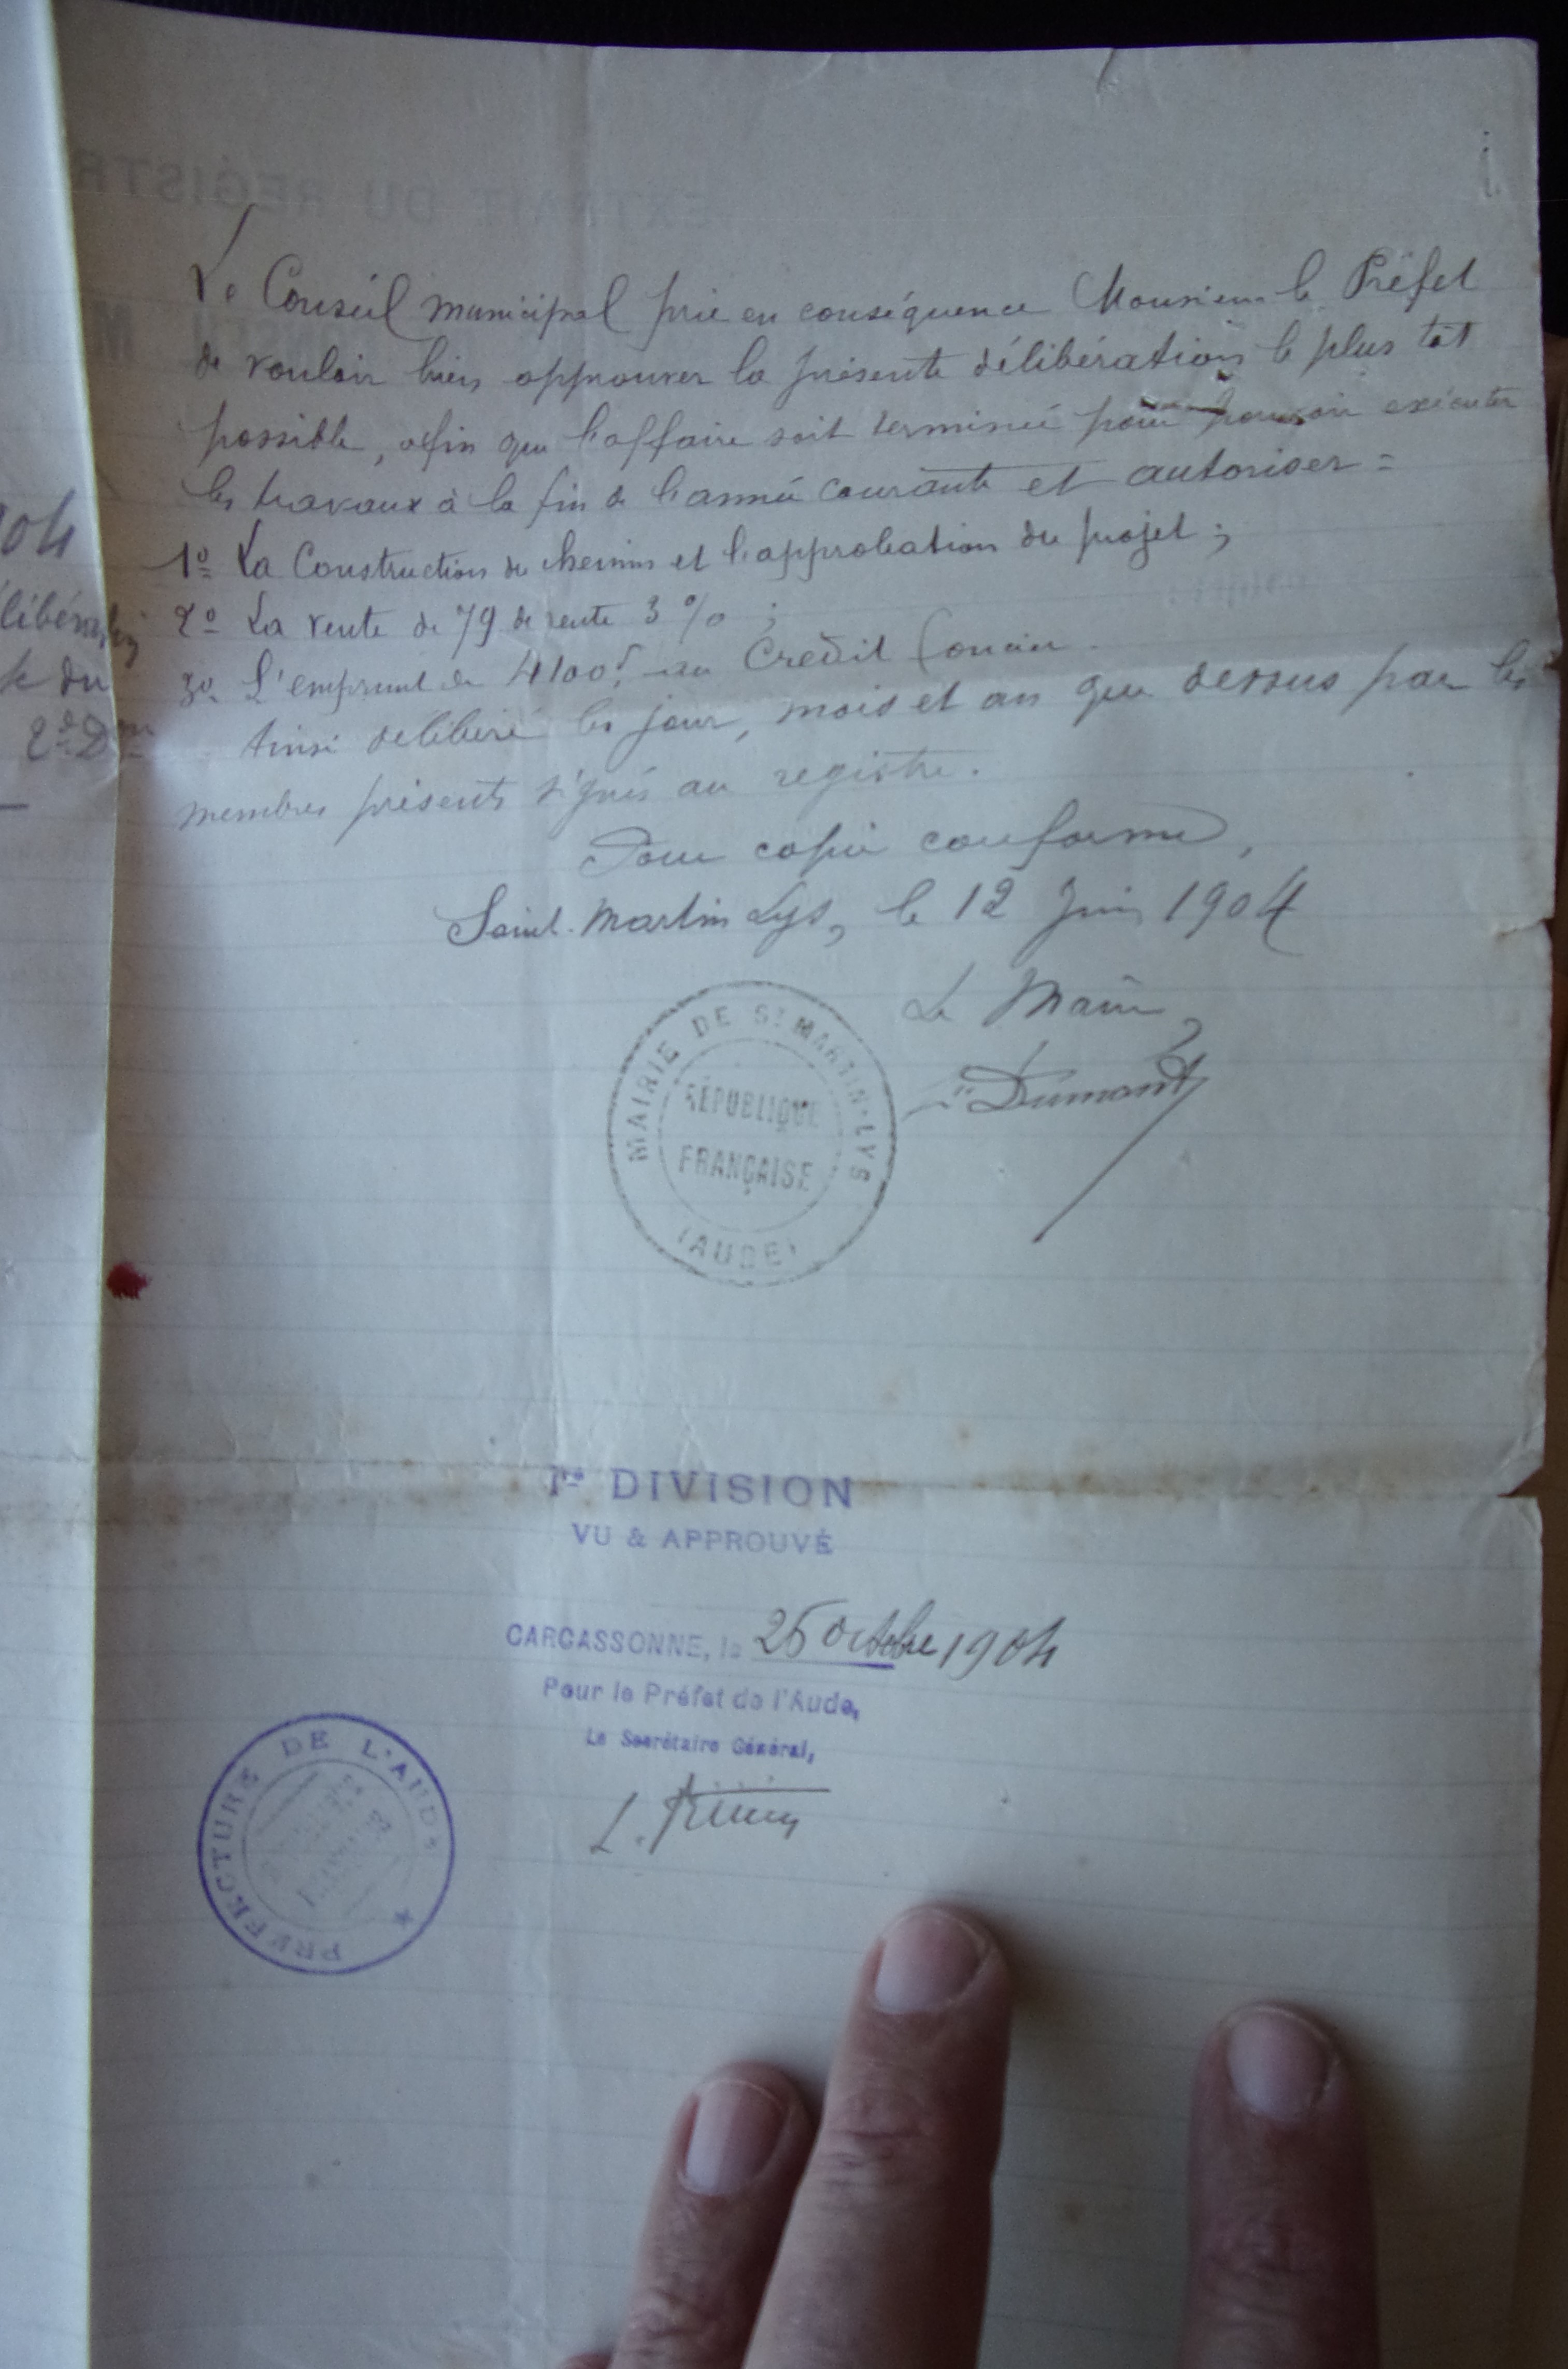 Le Conseil municipal prie en conséquence Monsieur le Préfet
de vouloir bien approuver la présente délibération le plus tôt
possible, afin que l'affaire soit terminée pour pouvoir exécuter
les travaux à la fin de l'année courante et autoriser =
1º La Construction du chemin et l'approbation du projet ;
2º La vente de 79 de rente 3 % ;
3º L'emprunt de 4100f au Credit foncier.
Ainsi délibéré les jour, mois et an que dessus par les
membres présents signés au registre.
Pour copie conforme,
Saint-Martin Lys, le 12 Juin 1904
Le Maire,
Dumont
MAIRIE DE ST MARTIN-LYS
RÉPUBLIQUE
FRANÇAISE
(AUDE)
1re DIVISION
VU & APPROUVÉ
CARCASSONNE, le 26 octobre 1904
Pour le Préfet de l'Aude,
Le Secrétaire Général,
PREFECTURE DE L'AUDE